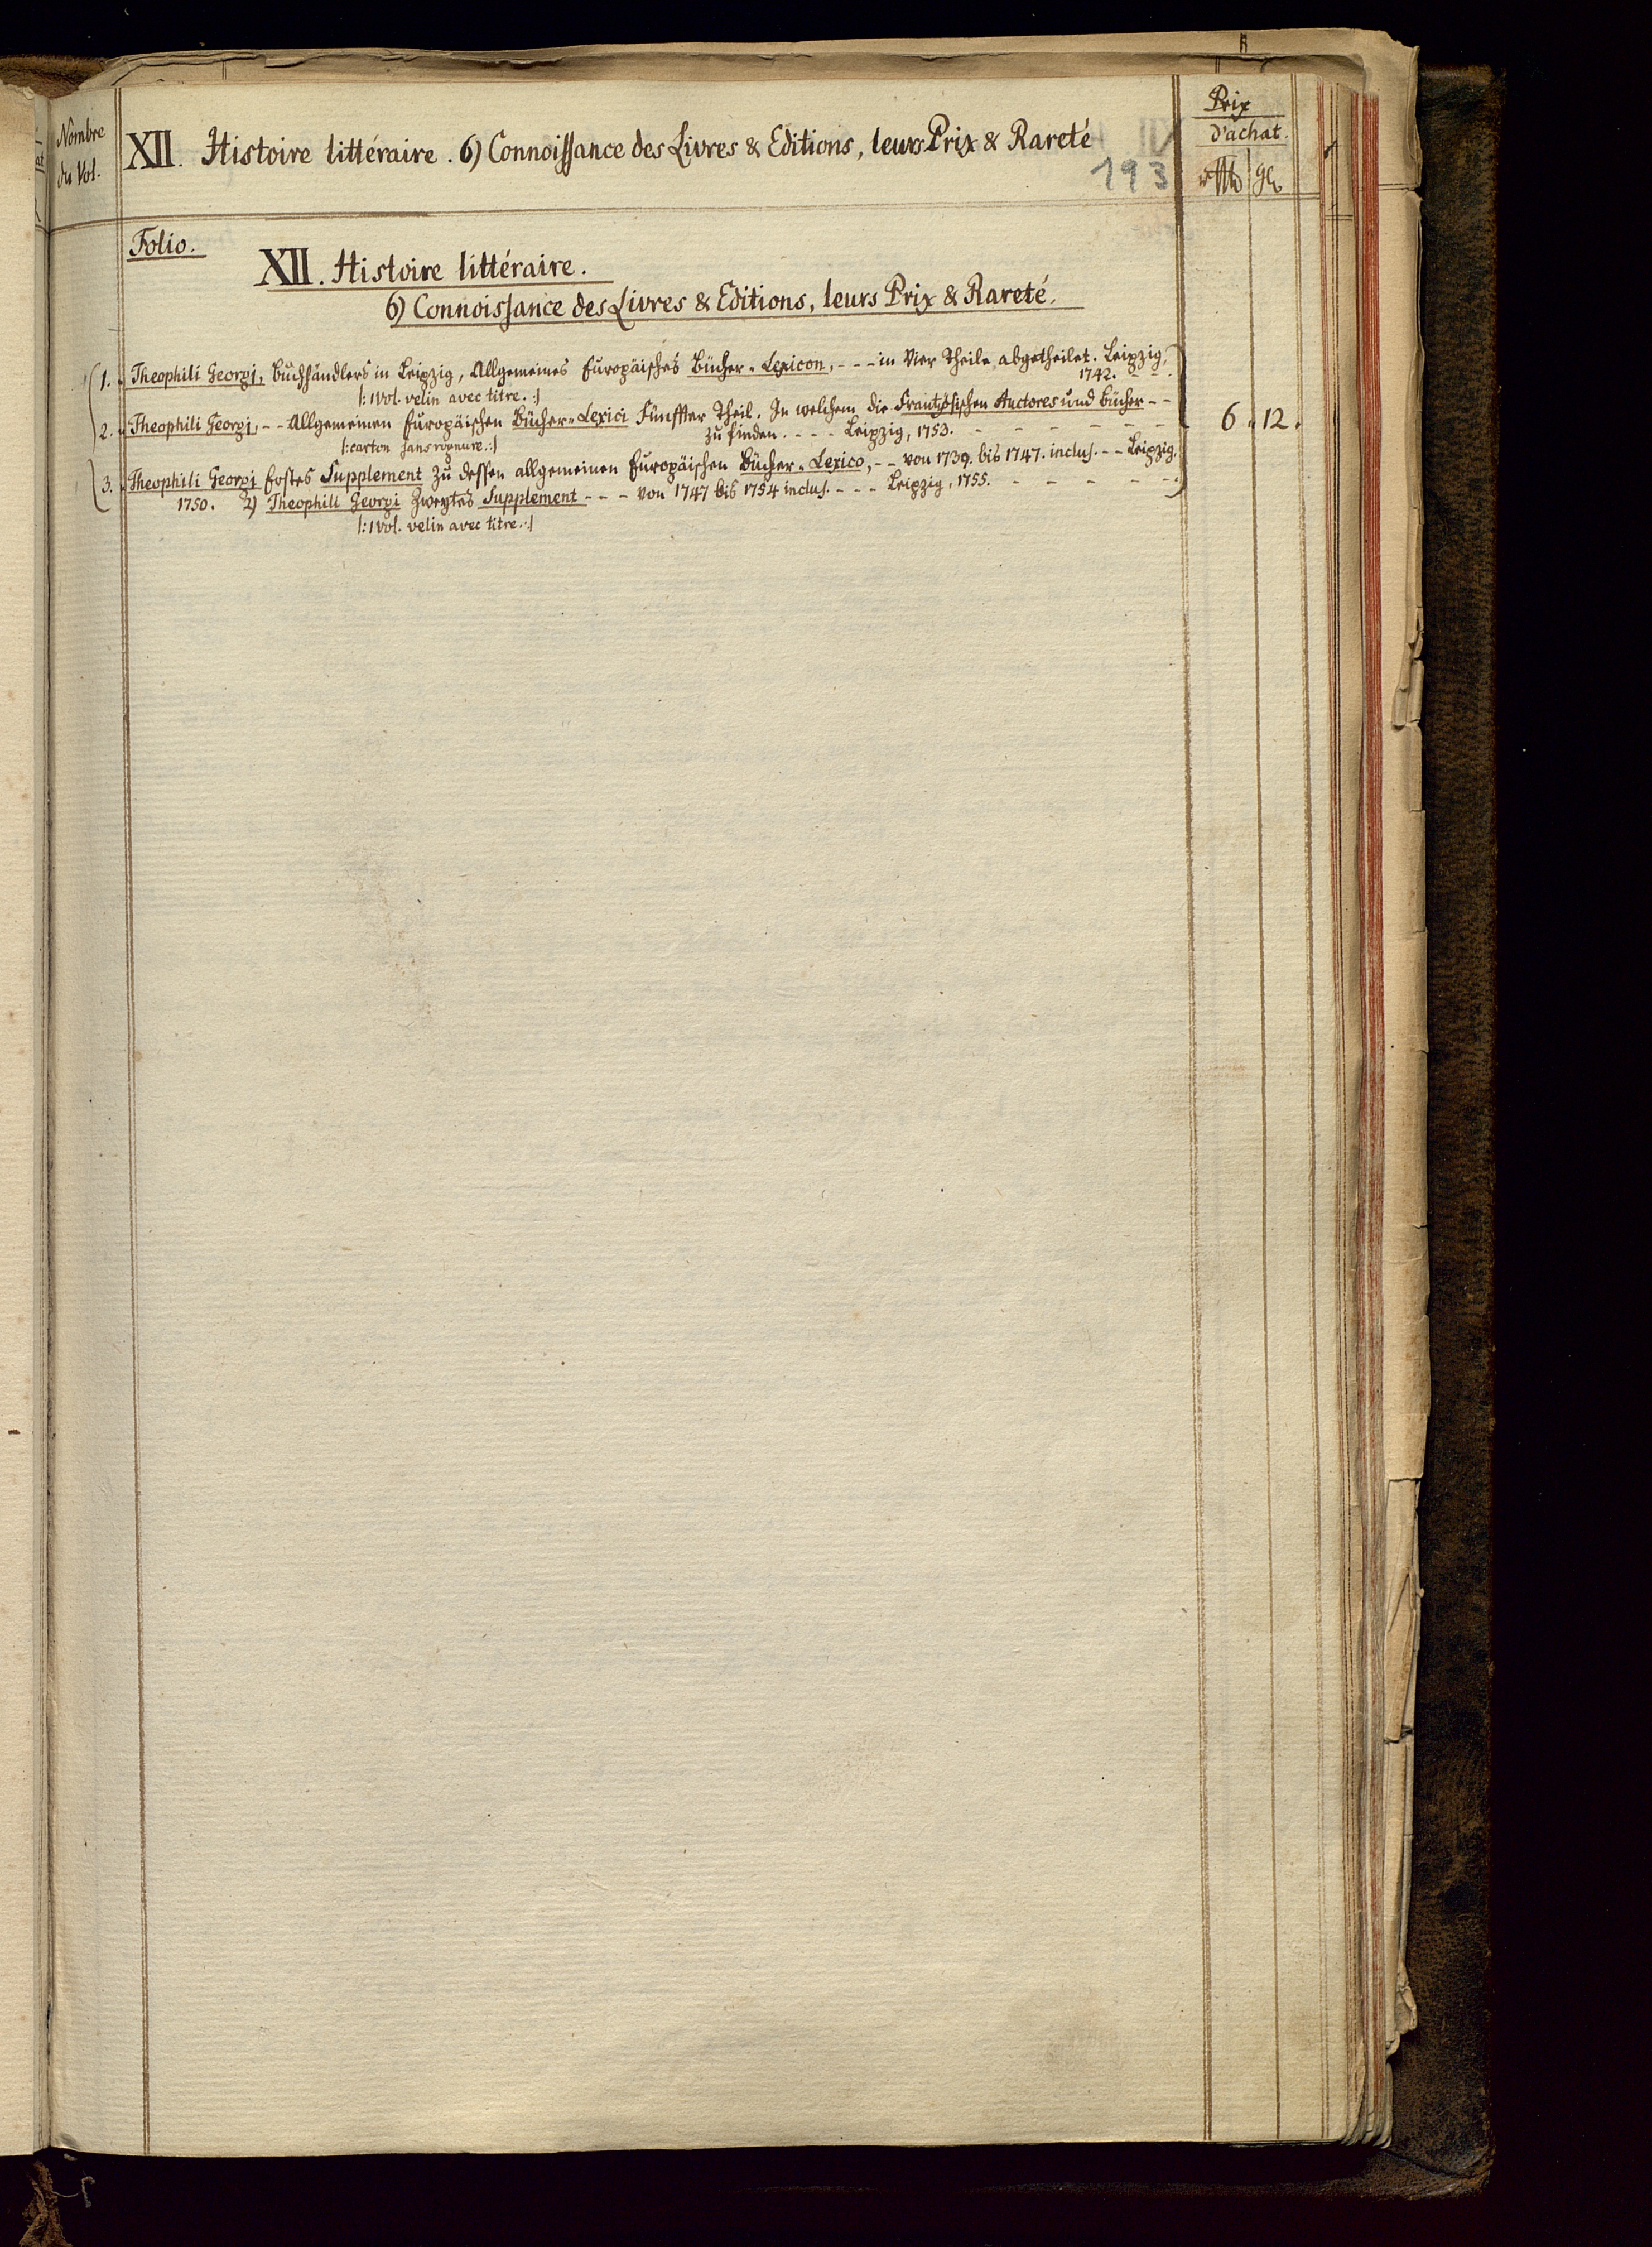 Nombre
du Vol.
XII. Histoire littéraire. 6) Connoissance des Livres & Editions, leurs Prix & Rareté
193
Prix
d'achat.
Folio.
XII. Histoire littéraire.
6) Connoissance des Livres & Editions, leurs Prix & Rareté.
1. Theophili Georgi, Buchhändlers in Leipzig, Allgemeines Europäisches Bücher-Lexicon, - - - in Vier Theile abgetheilet. Leipzig,
1742. - - .
|: 1 Vol. velin avec titre. :|
2. Theophili Georgi, - - Allgemeinen Europäischen Bücher-Lexici Fünffter Theil. In welchem die Frantzösischen Auctores und Bücher - -
zu finden. - - - Leipzig, 1753. - - - - - -
6. 12.
|: carton sans rognure. :|
3. Theophili Georgi Erstes Supplement zu dessen allgemeinen Europäischen Bücher-Lexico, - - von 1739. bis 1747. inclus. - - Leipzig,
1750. 2) Theophili Georgi Zweytes Supplement - - - von 1747 bis 1754 inclus. - - - Leipzig, 1755. - - - - - -
|: 1 Vol. velin avec titre. :|